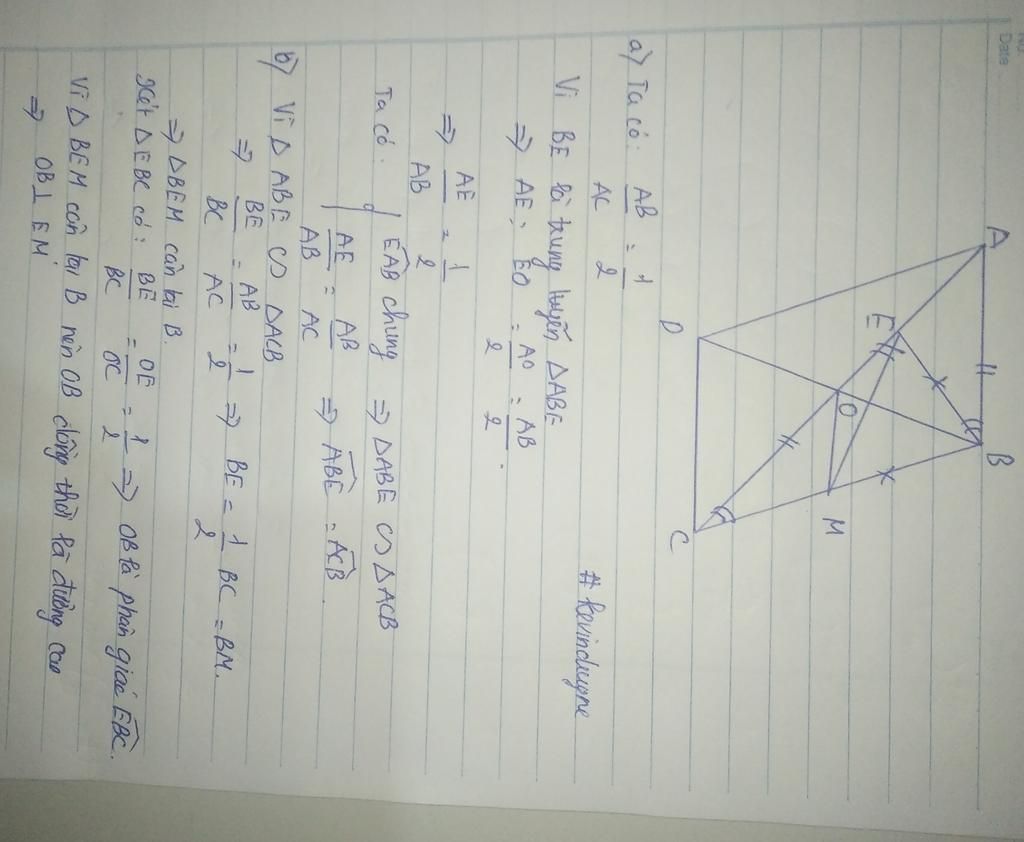 No
Date
A
B
E
O
M
D
C
# kevinduyne
a) Ta có: AB/AC = 1/2
Vì BE là trung tuyến ΔABE
⇒ AE = EO = AO/2 = AB/2.
⇒ AE/AB = 1/2
Ta có: { EAB chung
AE/AB = AB/AC ⇒ ΔABE ∽ ΔACB
⇒ ABE = ACB.
b) Vì ΔABE ∽ ΔACB
⇒ BE/BC = AB/AC = 1/2 ⇒ BE = 1/2 BC = BM.
⇒ ΔBEM cân tại B.
Xét ΔEBC có: BE/BC = OE/OC = 1/2 ⇒ OB là phân giác EBC.
Vì ΔBEM cân tại B nên OB đồng thời là đường cao
⇒ OB⊥EM.